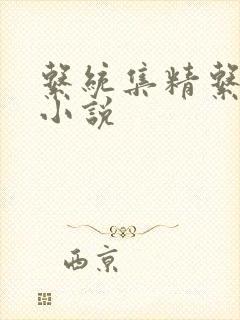 繫統集精繫
小說
西京